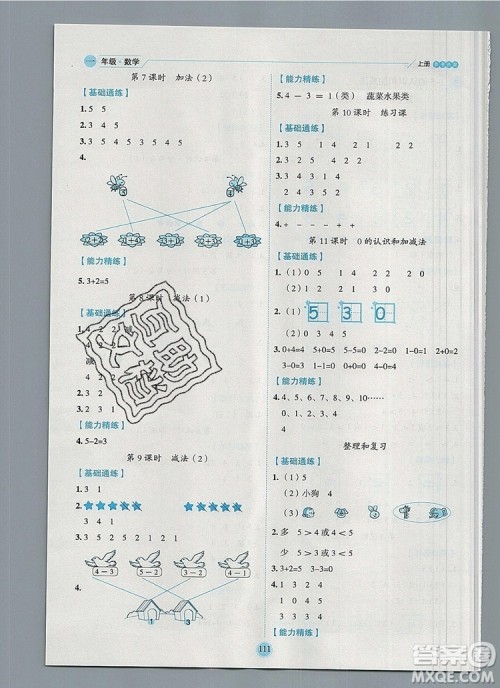 一 年级·数学
第7课时 加法(2)
【基础通练】
1. 5 5
2. 5 3 5 5
3. 3 4 5 4 5
4.
【能力精练】
5. 3+2=5
减法(1)
【基础通练】
1. 4 2 2
3. 1 3
【能力精练】
5. 5-2=3
第9课时 减法(2)
【基础通练】
1. 3 1
2.
3. 1 3 1 2 3
4-3 5-2 3-2 4-1
4.
① ③
上册
【能力精练】
5. 4-3=1(类) 蔬菜水果类
第10课时 练习课
【基础通练】
1. 1 5 1 4 1 2 2 1
2. > < < > = <
3. 1 1 3 1 1
2 4 3 5 1
【能力精练】
4. + - - + - +
第11课时 0的认识和加减法
【基础通练】
1. (1) 0 5 4 2 2 0
(2) 0 1 2 3 4 5
2. (1) 5 3 0
3. 0+4=4 3-3=0 2+0=2 1-0=1
5-0=5 0+0=0 1-1=0 0+2=2
【能力精练】
4. 4、5、6、7、8、9、10……
0、1、2、3、4
整理和复习
【基础通练】
1. (1) 5 4
(2) 小狗 4
(3)
2. 多 5>4或4<5
少 5>3或3<5
3. 3+2=5
4. 1 3 2 4
1 5 3 0
0 0 4 4
【能力精练】
111
答案圈
MXQE.COM